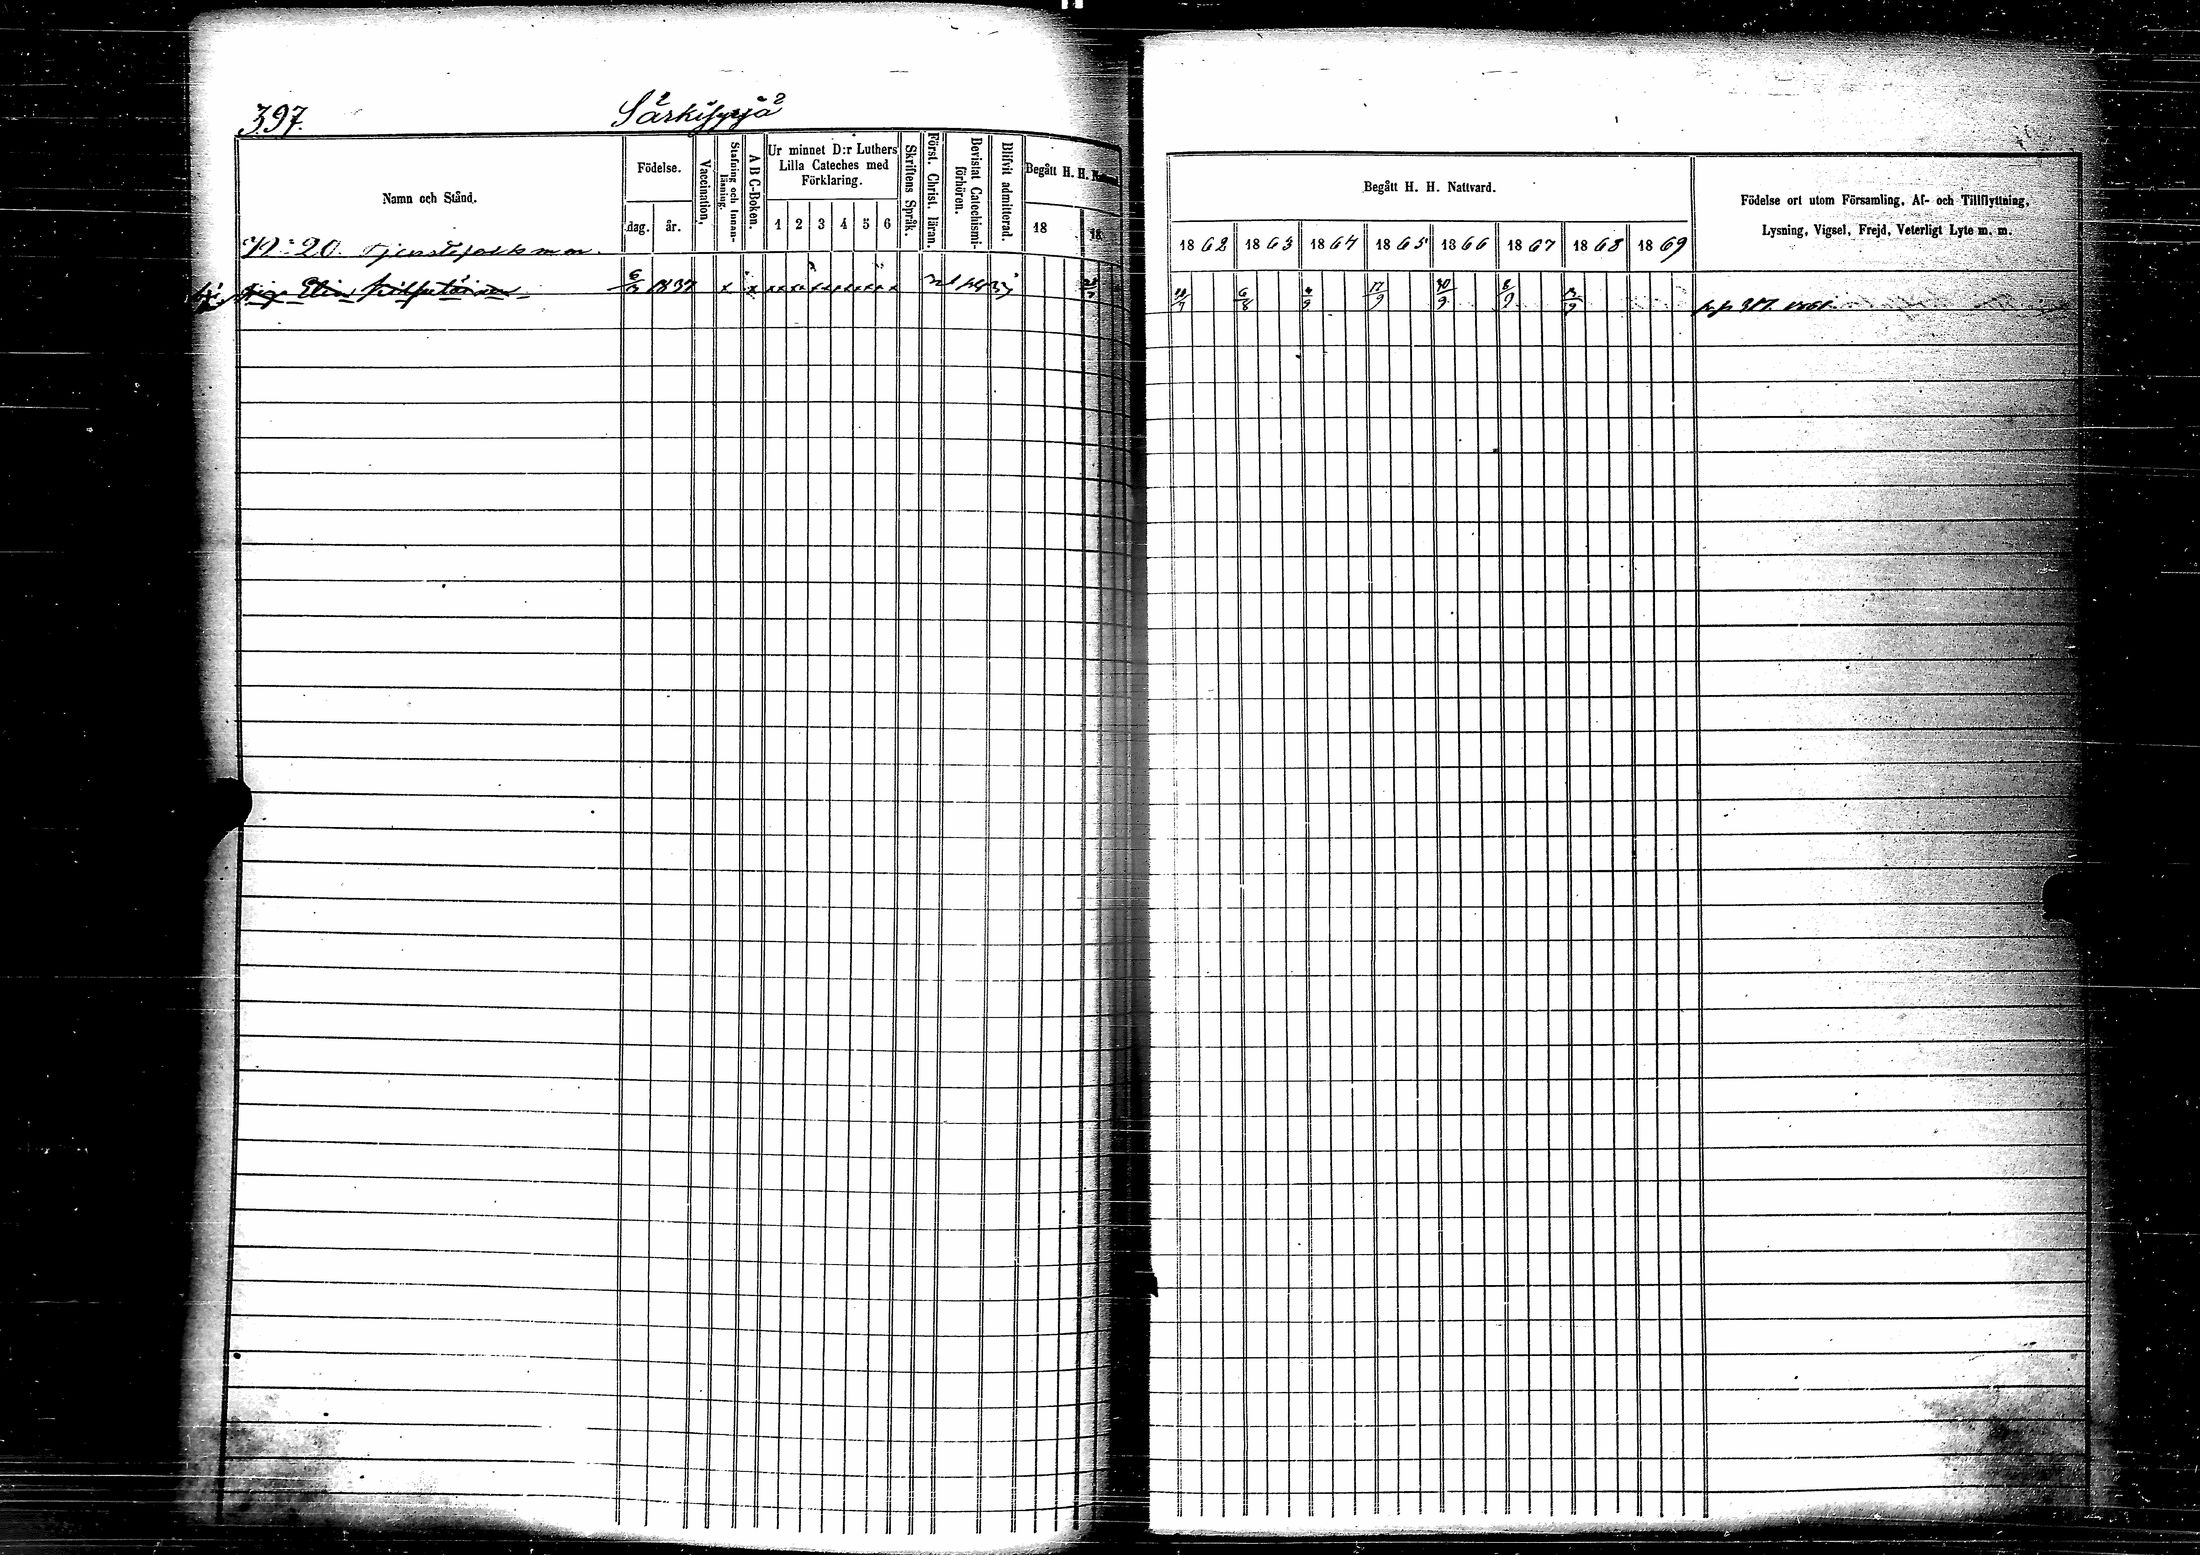 397. Särkisyrjä
Namn och Stånd.
Födelse.
dag. år.
Vaccination.
Stafning och Innanläsning.
A B C-Boken.
Ur minnet D:r Luthers Lilla Cateches med Förklaring.
1 2 3 4 5 6
Skriftens Språk.
Först. Christ. läran.
Bevistat Catechismiförhören.
Blifvit admitterad.
Begått H. H.
18 18
N:o 20. Tjenstefolk m m.
Elin 6 1837
Begått H. H. Nattvard.
1862 1863 1864 1865 1866 1867 1868 1869
Födelse ort utom Församling, Af- och Tillflyttning,
Lysning, Vigsel, Frejd, Veterligt Lyte m. m.
6/8 17/9 30/9 8/9